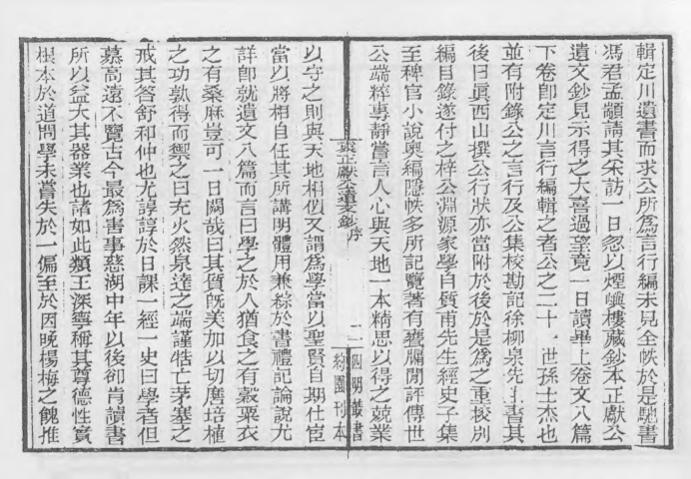 輯定川遺書而求公所爲言行編未見全帙於是馳書
馮君孟顓請其采訪一日忽以煙嶼樓藏鈔本正獻公
遺文鈔見示得之大喜過望竟一日讀畢上卷文八篇
下卷卽定川言行編輯之者公之二十一世孫士杰也
並有附錄公之言行及公集校勘記徐柳泉先生書其
後曰眞西山撰公行狀亦當附於後於是爲之重挍別
編目錄遂付之梓公淵源家學自質甫先生經史子集
至稗官小說奧編隱帙多所記覽著有甕牖閒評傳世
公端粹專靜嘗言人心與天地一本精思以得之兢業
袁正獻公遺文鈔 序
二
四明叢書
約園刊本
以守之則與天地相似又謂爲學當以聖賢自期仕宦
當以將相自任其所講明體用兼綜於書禮記論說尤
詳卽就遺文八篇而言曰學之於人猶食之有穀粟衣
之有桑麻豈可一日闕哉曰其質旣美加以切磨培植
之功孰得而禦之曰充火然泉達之端謹牿亡茅塞之
戒其答舒和仲也尤諄諄於日課一經一史曰學者但
慕高遠不覽古今最爲害事慈湖中年以後卻肯讀書
所以益大其器業也諸如此類王深寧稱其尊德性實
根本於道問學未嘗失於一偏至於因晚楊梅之餽推